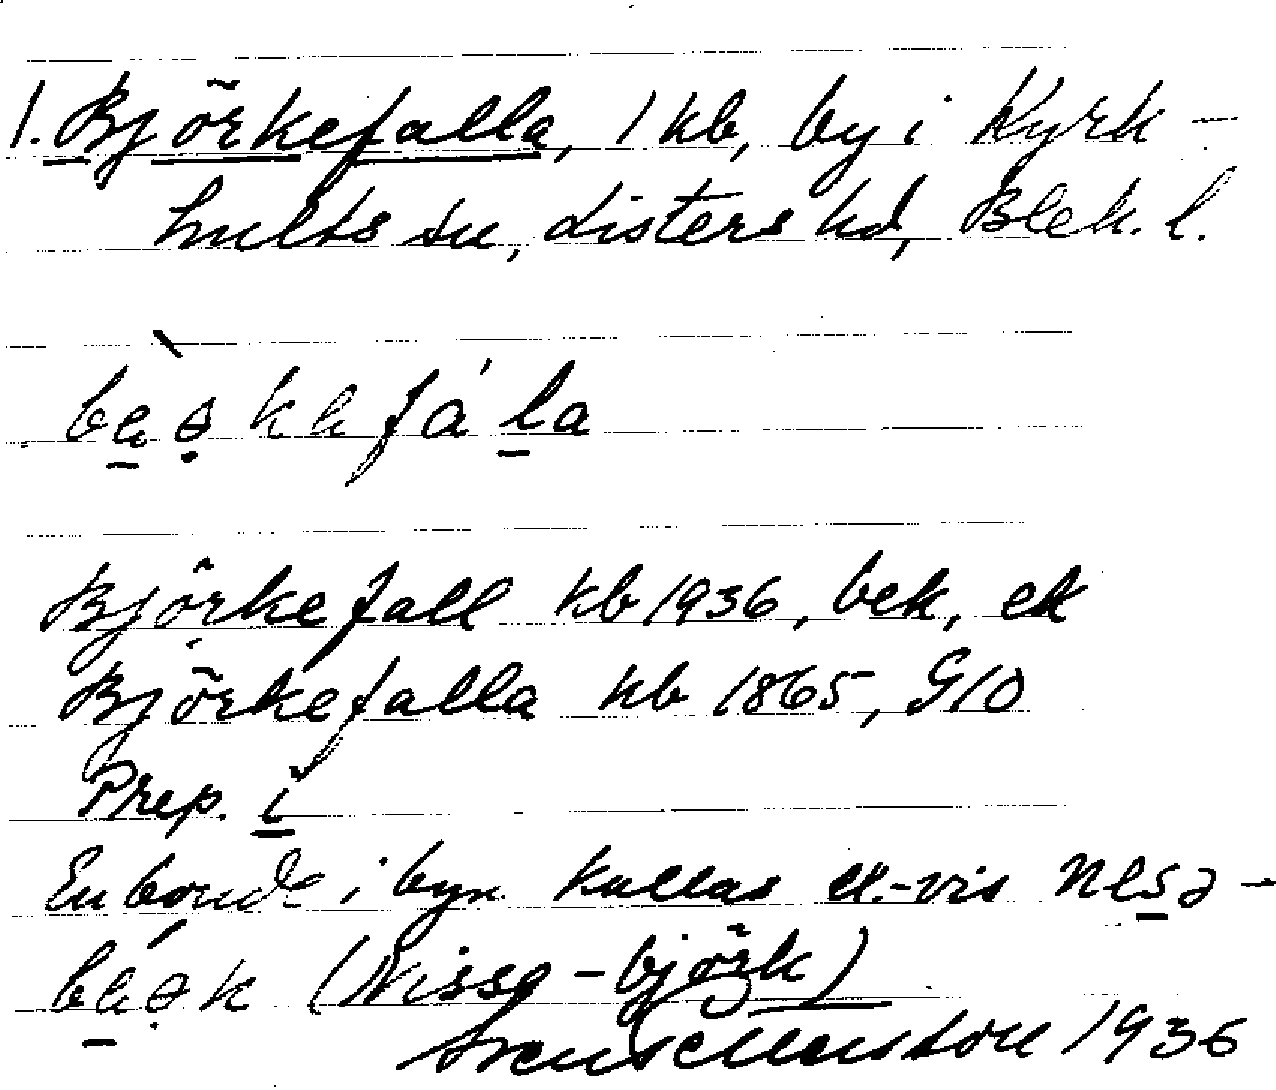 1. Björkefalla, 1 kb, by i Kyrk-
hults sn, Listers hd, Blek. l.
Björkefall kb 1936, bek, ek
Björkefalla kb 1865, G10
Prep. i
En bonde i byn kallas ell.-vis
(Nisse-björk)
1936